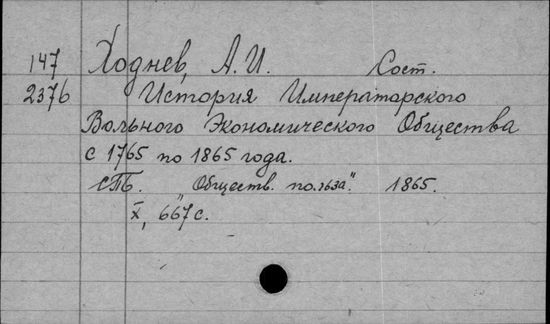 147 Ходнев, А.И. Сост.
2376 История Императорского
Вольного Экономического Общества
с 1765 по 1865 года.
СПБ. „Обществ. польза". 1865.
X, 667 с.